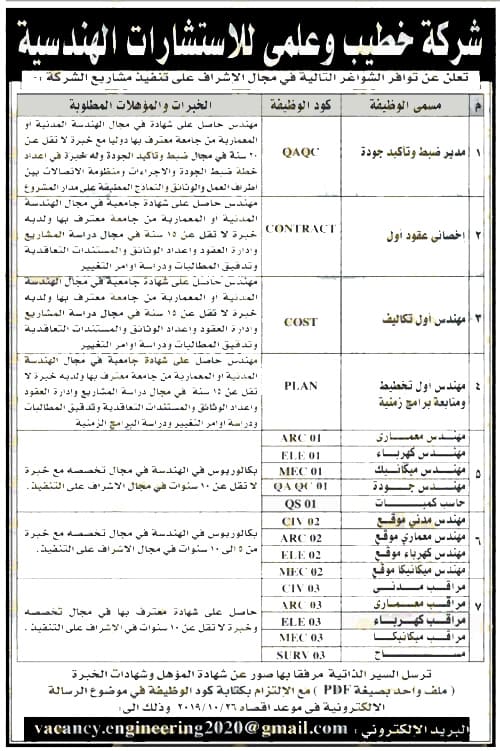 شركة خطيب وعلمى للاستشارات الهندسية
تعلن عن توافر الشواغر التالية في مجال الاشراف على تنفيذ مشاريع الشركة :-
م مسمى الوظيفة كود الوظيفة الخبرات والمؤهلات المطلوبة
١ مدير ضبط وتأكيد جودة QAQC
مهندس حاصل على شهادة في مجال الهندسة المدنية او
المعمارية من جامعة معترف بها دوليا مع خبرة لا تقل عن
٢٠ سنة في مجال ضبط وتأكيد الجودة وله خبرة في اعداد
خطة ضبط الجودة والاجراءات ومنظومة الاتصالات بين
اطراف العمل والوثائق والنماذج المطبقة على مدار المشروع
٢ اخصائى عقود أول CONTRACT
مهندس حاصل على شهادة جامعية في مجال الهندسة
المدنية او المعمارية من جامعة معترف بها ولديه
خبرة لا تقل عن ١٥ سنة في مجال دراسة المشاريع
وادارة العقود واعداد الوثائق والمستندات التعاقدية
وتدقيق المطالبات ودراسة اوامر التغيير
٣ مهندس أول تكاليف COST
مهندس حاصل على شهادة جامعية في مجال الهندسة
المدنية او المعمارية من جامعة معترف بها ولديه
خبرة لا تقل عن ١٥ سنة في مجال دراسة المشاريع
وادارة العقود واعداد الوثائق والمستندات التعاقدية
وتدقيق المطالبات ودراسة اوامر التغيير
٤ مهندس اول تخطيط
ومتابعة برامج زمنية PLAN
مهندس حاصل على شهادة جامعية في مجال الهندسة
المدنية او المعمارية من جامعة معترف بها ولديه خبرة لا
تقل عن ١٥ سنة في مجال دراسة المشاريع وادارة العقود
واعداد الوثائق والمستندات التعاقدية وتدقيق المطالبات
ودراسة اوامر التغيير ودراسة البرامج الزمنية
٥
مهندس معمارى ARC 01
مهندس كهرباء ELE 01
مهندس ميكانيك MEC 01
مهندس جودة QA QC 01
حاسب كميات QS 01
بكالوريوس في الهندسة في مجال تخصصه مع خبرة
لا تقل عن ١٠ سنوات في مجال الاشراف على التنفيذ.
٦
مهندس مدني موقع CIV 02
مهندس معماري موقع ARC 02
مهندس كهرباء موقع ELE 02
مهندس ميكانيكا موقع MEC 02
بكالوريوس في الهندسة في مجال تخصصه مع خبرة
من ٥ الى ١٠ سنوات في مجال الاشراف على التنفيذ.
٧
مراقب مدنى CIV 03
مراقب معمارى ARC 03
مراقب كهرباء ELE 03
مراقب ميكانيكا MEC 03
مساح SURV 03
حاصل على شهادة معترف بها في مجال تخصصه
وخبرة لا تقل عن ١٠ سنوات في الاشراف على التنفيذ.
ترسل السير الذاتية مرفقا بها صور عن شهادة المؤهل وشهادات الخبرة
( ملف واحد بصيغة PDF ) مع الإلتزام بكتابة كود الوظيفة في موضوع الرسالة
الالكترونية فى موعد اقصاه ٢٠١٩/١٠/٢٦ وذلك الى:
البريد الالكترونى : vacancy.engineering2020@gmail.com